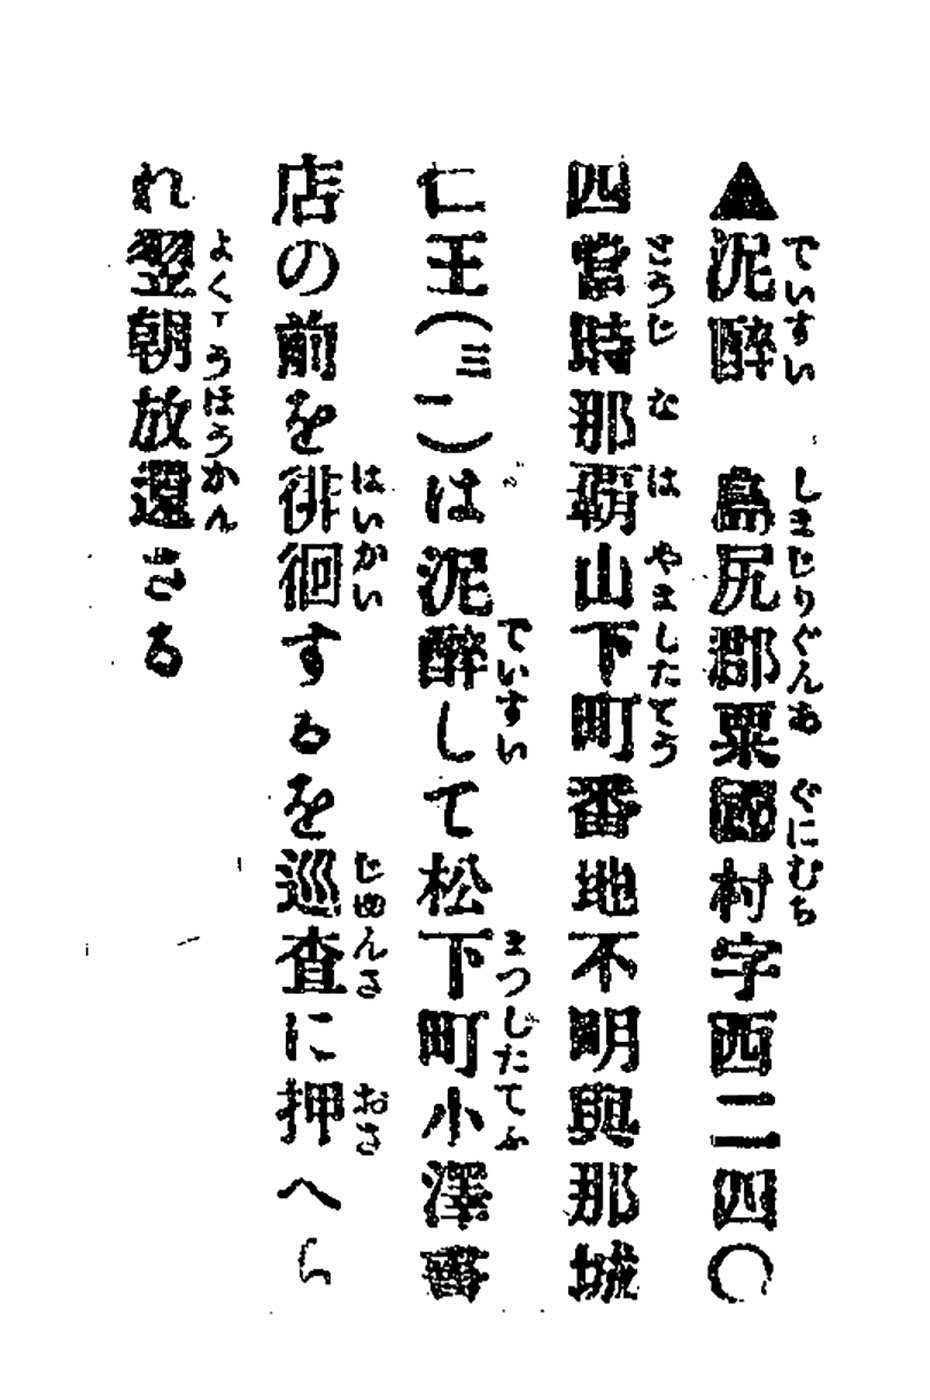 ▲泥醉　島尻郡粟國村字西二四〇
四當時那覇山下町番地不明與那城
仁王(三二)は泥醉して松下町小澤書
店の前を徘徊するを巡査に押へら
れ翌朝放還さる